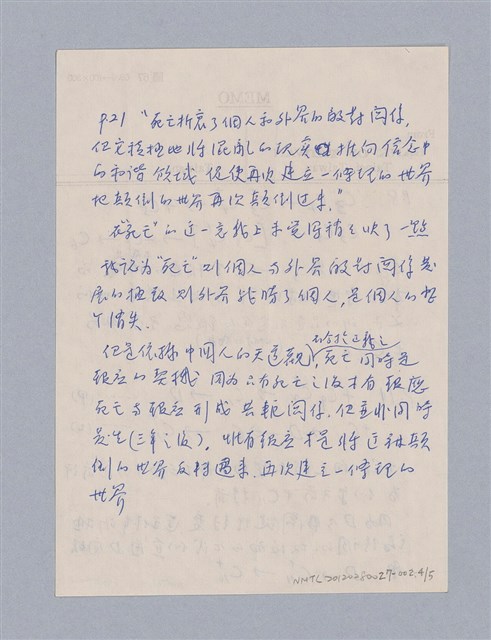 P.21 "死亡折衷了個人和外界的敵對關係,
但它積極地將混亂的現實推向信念中
的和諧領域 促使再次建立一條理的世界
把顛倒的世界再次顛倒過來."
在"死亡"的這一意義上來覺得稍々欠了一點
我認為"死亡"則個人與外界敵對關係發
展的極致 則外界戰勝了個人,是個人的整
個消失.
但是依據中國人的天道觀,死亡同時是
報應的契機 因為只有死亡之後才有報應
死亡與報應形成共軛關係.但並非同時
發生(三年之後),唯有報應才是將這種顛
倒的世界反轉過來.再次建立一條理的
世界
NMTL20120280027-002,4/5
MEMO